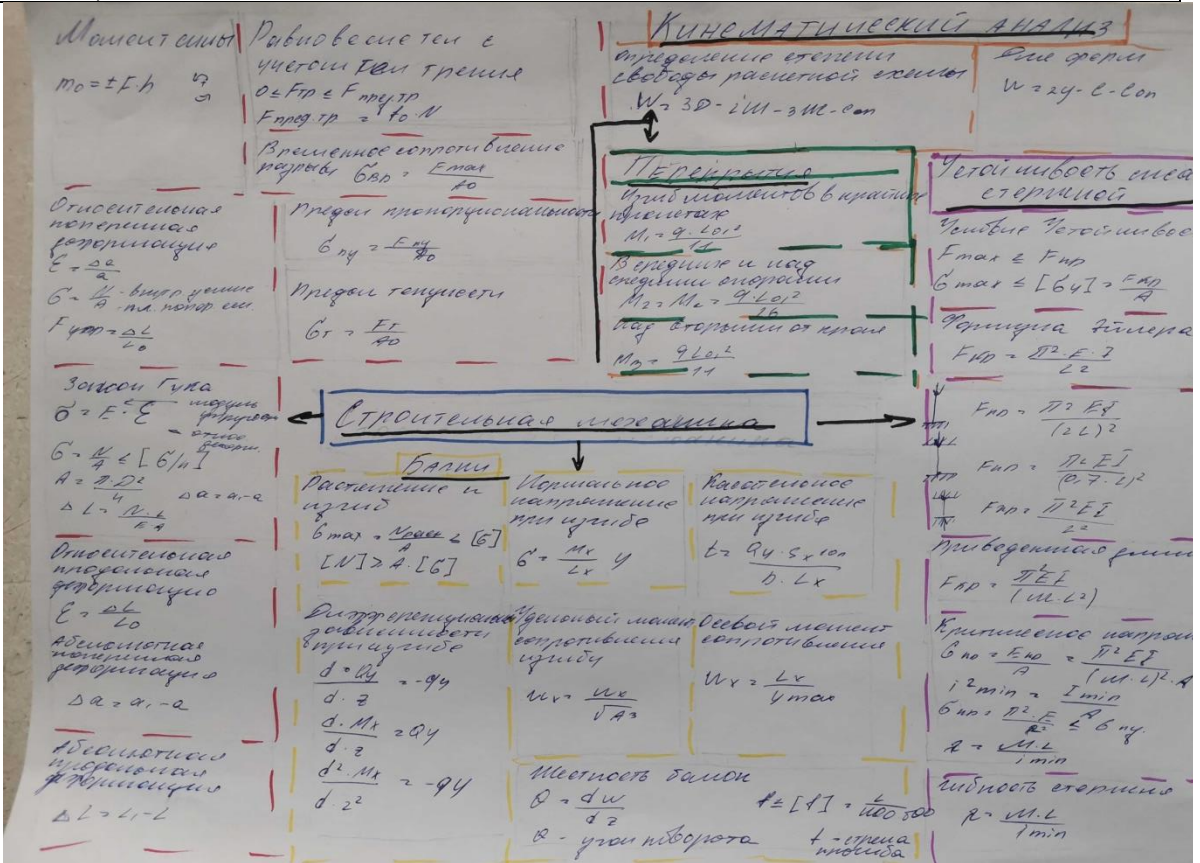 Момент силы
m₀ = ± F·h
Равновесие тел с
учетом сил трения
0 ≤ Fтр ≤ Fпред.тр
Fпред.тр = f₀·N
Временное сопротивление
разрыва σвр = Fmax/A₀
Кинематический анализ
определение степени
свободы расчетной схемы
W = 3D - 2Ш - 3Ж - Cоп
Для ферм
W = 2У - С - Соп
Относительная
поперечная
деформация
ε = Δa/a
σ = N/A - внутр. усилие
- пл. попер. сеч.
Fупр = ΔL/L₀
Предел пропорциональности
σпу = Fпу/A₀
Предел текучести
σт = Fт/A₀
Перекрытия
Изгиб моментов в крайних
пролетах
M₁ = q·L₀₁²/11
В средине и над
средними опорами
M₂ = Mc = q·L₀₁²/16
Над вторыми от края
M₃ = qL₀₁²/11
Устойчивость
стержней
Условие
Fmax ≤ Fкр
σmax ≤ [σy] = Fкр/A
Формула Эйлера
Fкр = π²·E·I/L²
Fкр = π²EI/(2L)²
Fкр = π²EI/(0,7·L)²
Fкр = π²EI/L²
Приведенная длин
Fкр = π²EI/(М·L²)
Критическое напряж
σкр = Fкр/A = π²EI/(М·L)²·A
i²min = Imin/A
≤ σпу
λ = М·L/imin
Гибкость стержня
λ = М·L/imin
Закон Гука
σ = E·ε
модуль
упругости
- относ.
деформ.
σ = N/A ≤ [σ/n]
A = π·D²/4 Δa = a₁-a
ΔL = N·L/EA
Строительная механика
Относительная
продольная
деформация
ε = ΔL/L₀
Абсолютная
поперечная
деформация
Δa = a₁-a
Абсолютная
продольная
деформация
ΔL = L₁-L
Балки
Растяжение и
изгиб
σmax = Nрасч/A ≤ [σ]
[N] ≥ A·[σ]
Нормальное
напряжение
при изгибе
σ = Mx/Lx y
Касательное
напряжение
при изгибе
t = Qy·Sx/b·Lx
Дифференциальные
зависимости
при изгибе
d=Qy/d·z = -qy
d·Mx/d·z = Qy
d²·Mx/d·z² = -qy
Удельный момент
сопротивления
изгибу
Wx = Wx/√A3
Осевой момент
сопротивления
Wx = Lx/ymax
Жесткость балок
θ = dw/dz
θ - угол поворота
f - стрела
прогиба